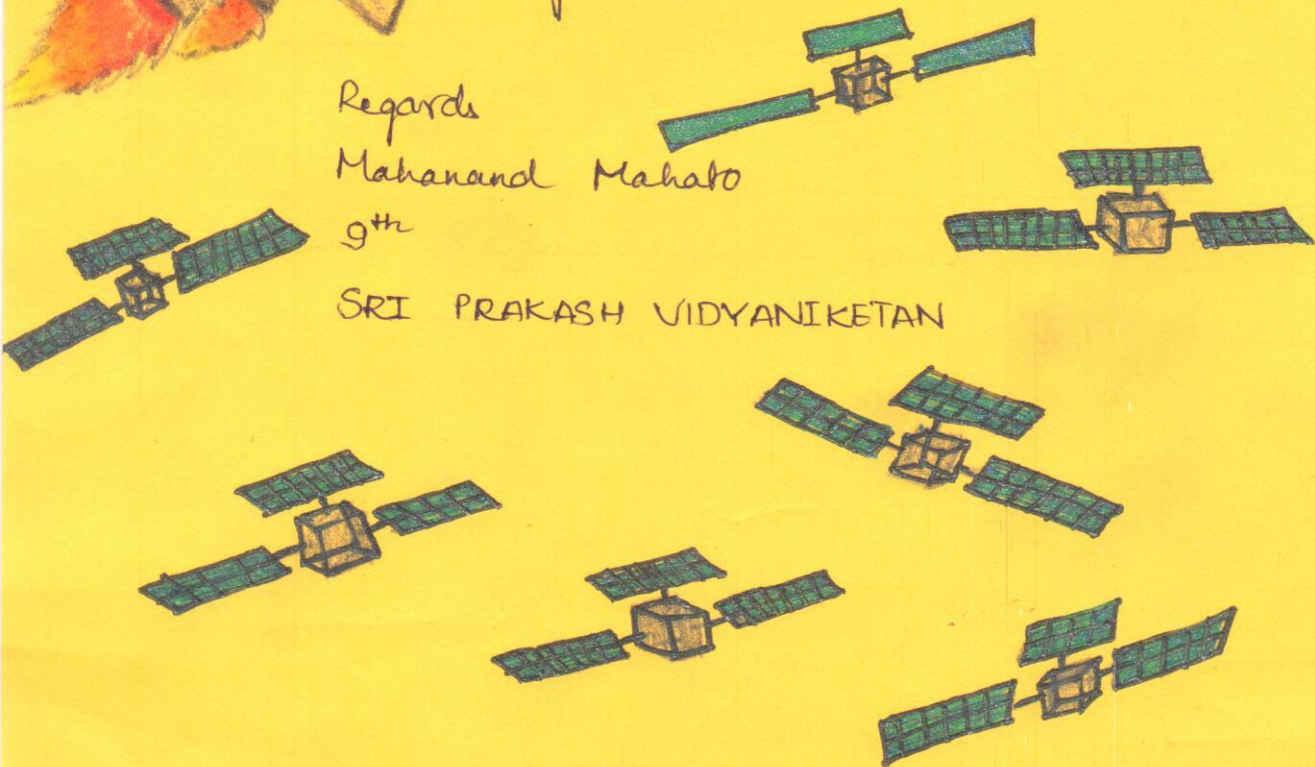 Regards
Mahanand Mahato
9th
SRI PRAKASH VIDYANIKETAN